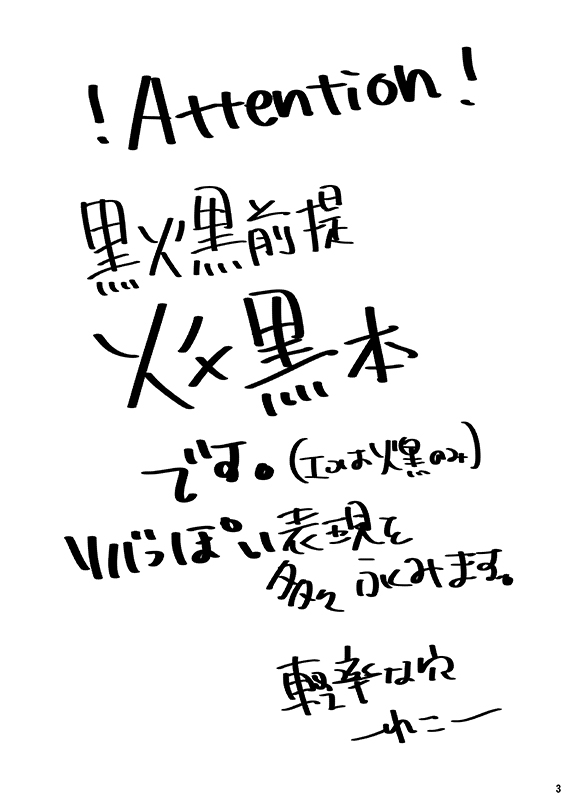 ! Attention !
黒火黒前提
火×黒本
です。(エロは火黒のみ)
リバっぽい表現を
多々ふくみます。
軽率な穴
ーれこー
3